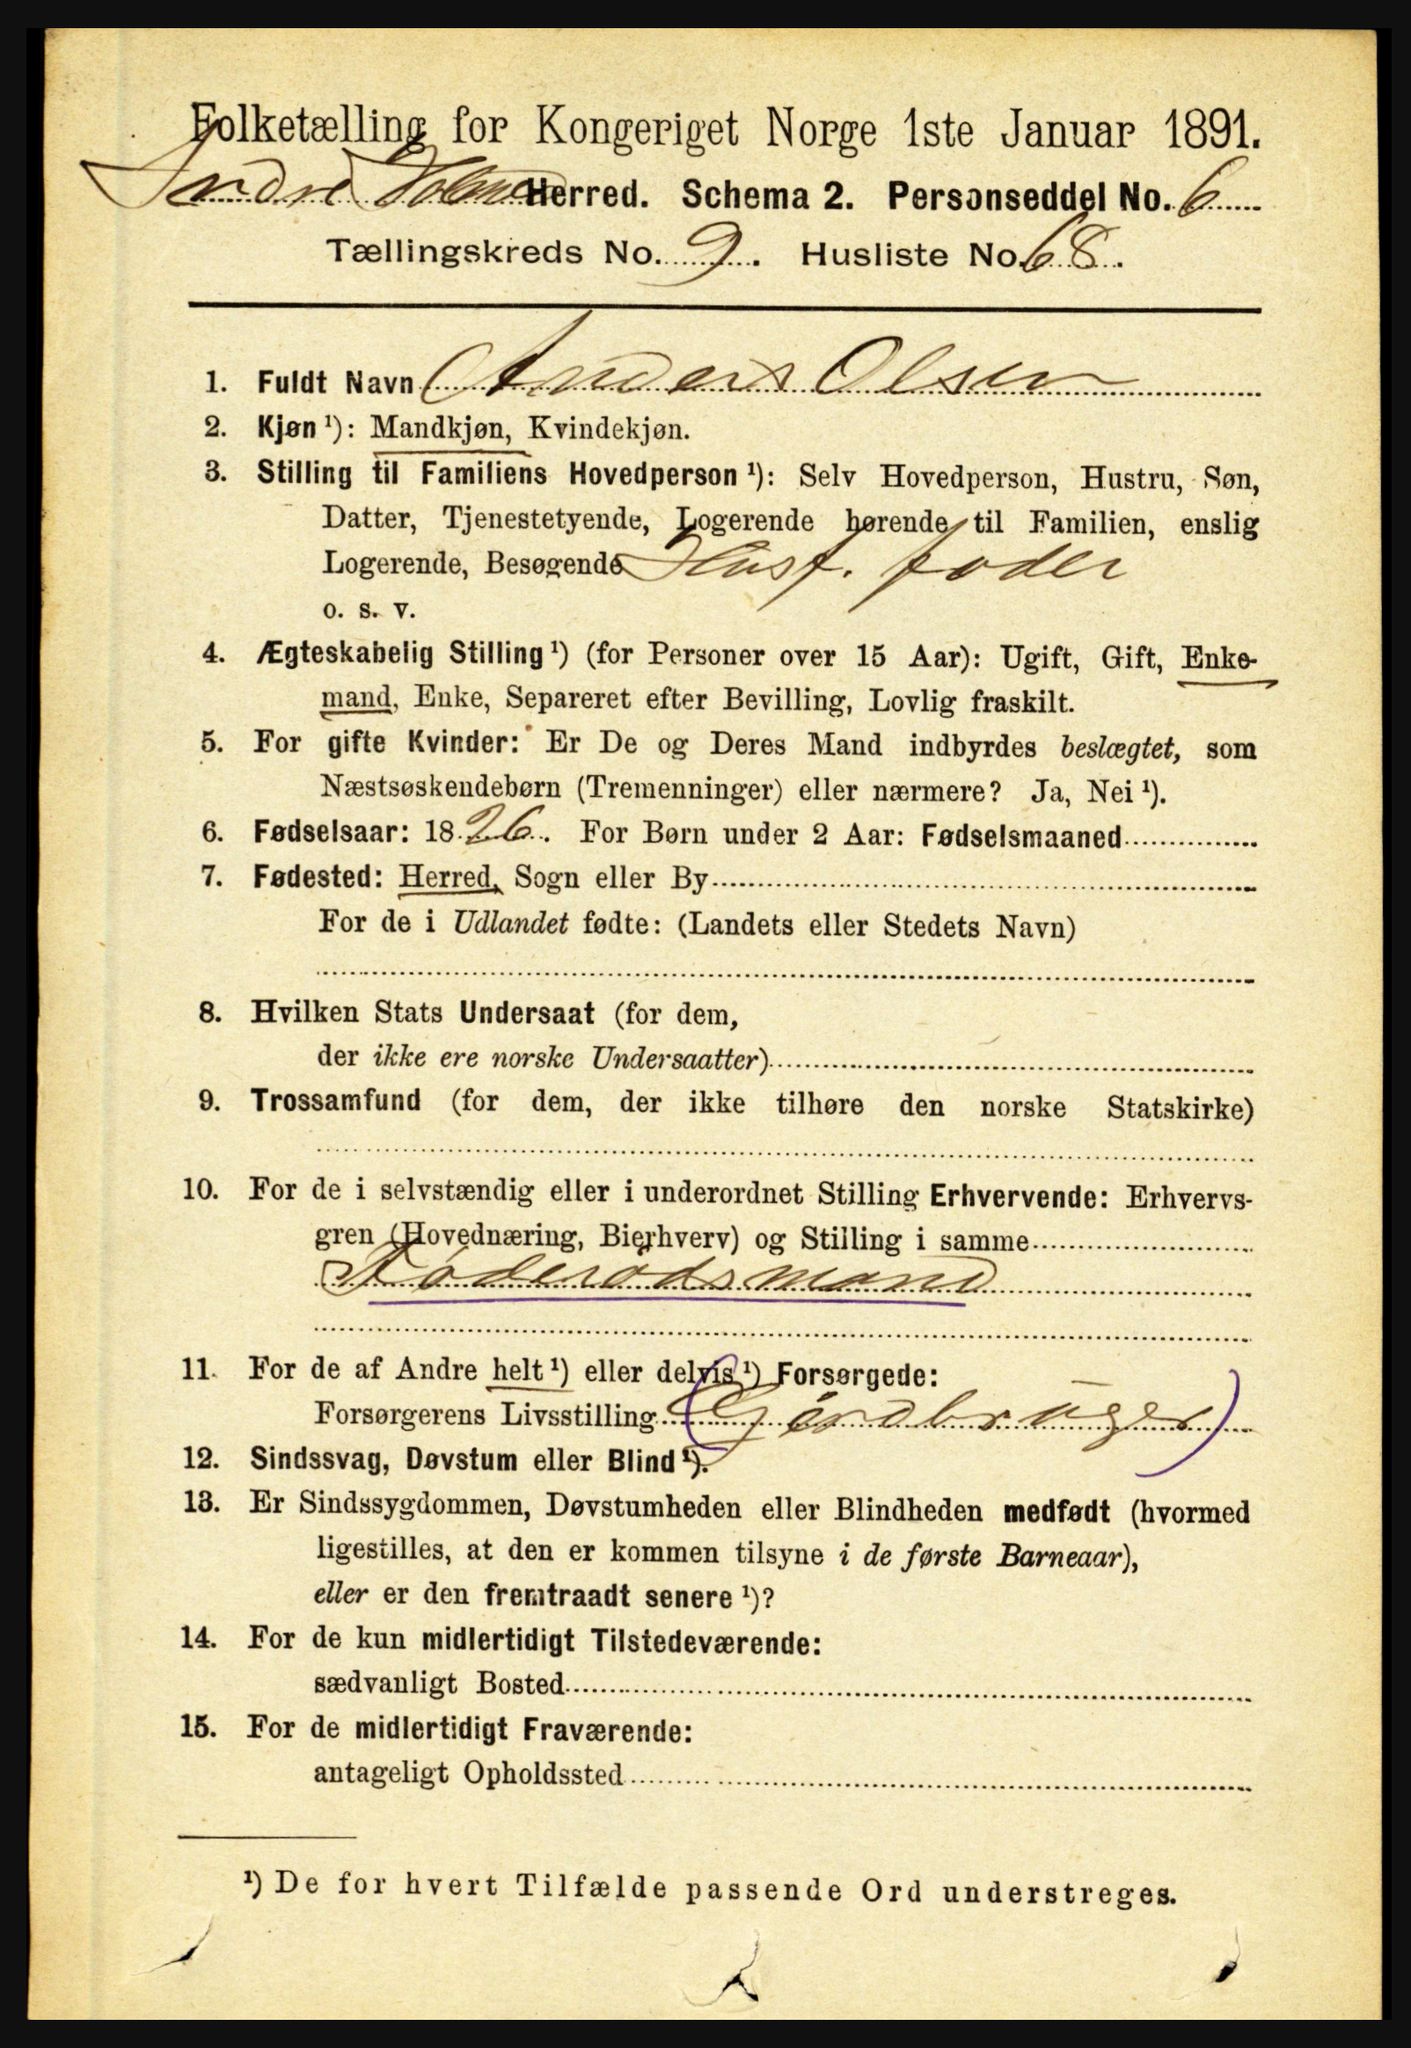 Folketælling for Kongeriget Norge 1ste Januar 1891.
Indre Holmed Herred. Schema 2. Personseddel No. 6
Tællingskreds No. 9. Husliste No. 68.
1. Fuldt Navn Anders Olsen
2. Kjøn ¹): Mandkjøn, Kvindekjøn.
3. Stilling til Familiens Hovedperson ¹): Selv Hovedperson, Hustru, Søn,
Datter, Tjenestetyende, Logerende hørende til Familien, enslig
Logerende, Besøgende Husf. fader
o. s. v.
4. Ægteskabelig Stilling ¹) (for Personer over 15 Aar): Ugift, Gift, Enke-
mand, Enke, Separeret efter Bevilling, Lovlig fraskilt.
5. For gifte Kvinder: Er De og Deres Mand indbyrdes beslægtet, som
Næstsøskendebørn (Tremenninger) eller nærmere? Ja, Nei ¹).
6. Fødselsaar: 1826. For Børn under 2 Aar: Fødselsmaaned
7. Fødested: Herred, Sogn eller By
For de i Udlandet fødte: (Landets eller Stedets Navn)
8. Hvilken Stats Undersaat (for dem,
der ikke ere norske Undersaatter)
9. Trossamfund (for dem, der ikke tilhøre den norske Statskirke)
10. For de i selvstændig eller i underordnet Stilling Erhvervende: Erhvervs-
gren (Hovednæring, Bierhverv) og Stilling i samme
Føderådsmand
11. For de af Andre helt ¹) eller delvis ¹) Forsørgede:
Forsørgerens Livsstilling (Gårdbruger)
12. Sindssvag, Døvstum eller Blind ¹).
13. Er Sindssygdommen, Døvstumheden eller Blindheden medfødt (hvormed
ligestilles, at den er kommen tilsyne i de første Barneaar),
eller er den fremtraadt senere ¹)?
14. For de kun midlertidigt Tilstedeværende:
sædvanligt Bosted
15. For de midlertidigt Fraværende:
antageligt Opholdssted
¹) De for hvert Tilfælde passende Ord understreges.